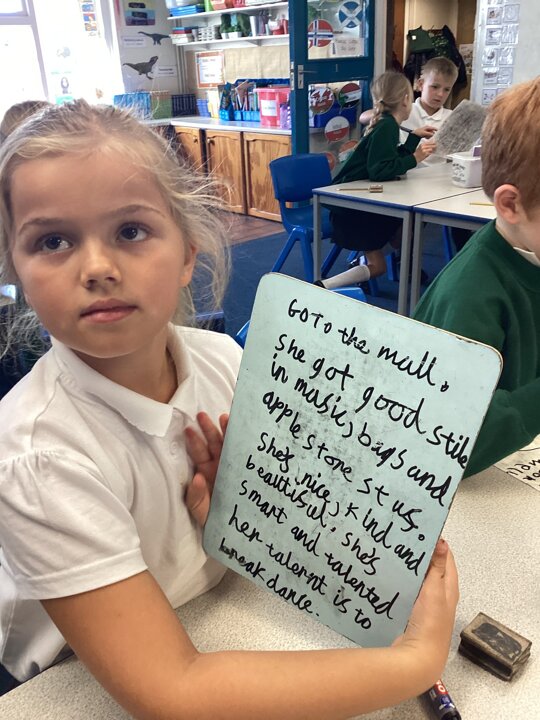 Go to the mall.
She got good stile
in music, bags and
apple stone st us.
She's nice, kind and
beautiful. she's
smart and talented
her talernt is to
break dance.